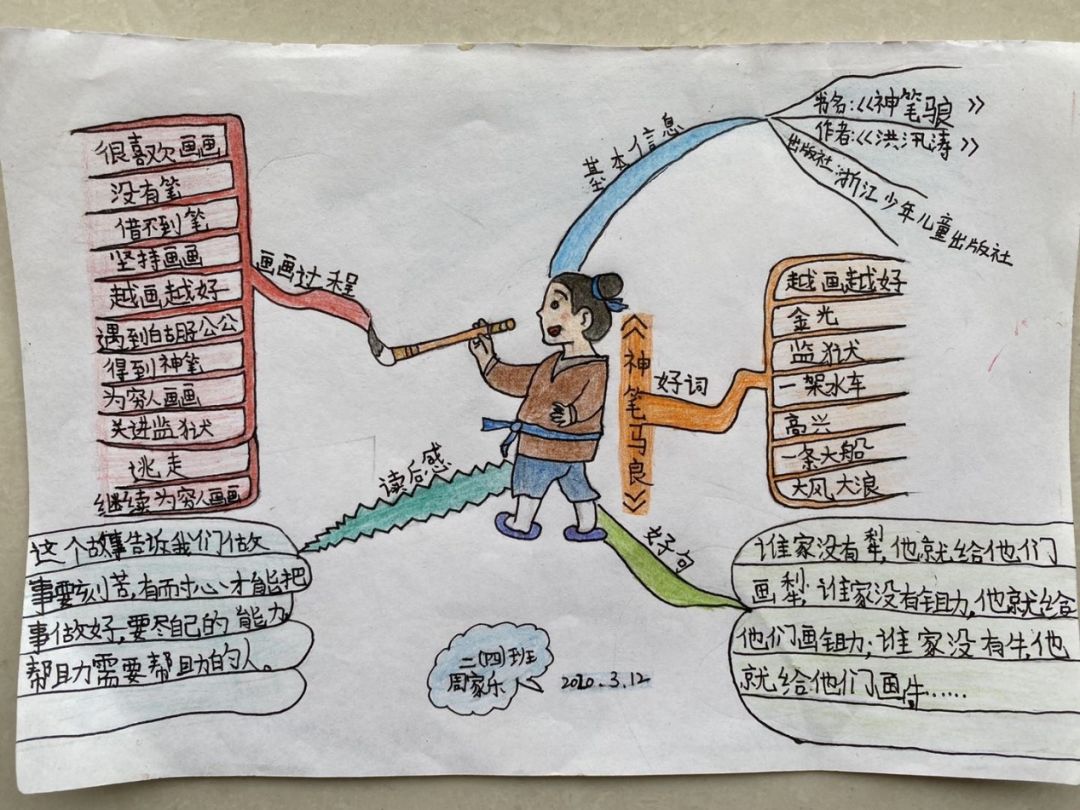 很喜欢画画
没有笔
借不到笔
坚持画画
越画越好
遇到白胡服公公
得到神笔
为穷人画画
关进监狱
逃走
继续为穷人画画
画画过程
基本信息
书名:《神笔狼》
作者:《洪汛涛》
出版社:浙江少年儿童出版社
《神笔马良》
好词
越画越好
金光
监狱
一架水车
高兴
一条大船
大风大浪
读后感
这个故事告诉我们做
事要刻苦,有耐心才能把
事做好,要尽自己的能力,
帮助需要帮助的人。
好句
谁家没有犁,他就给他们
画犁;谁家没有锄,他就给
他们画锄;谁家没有牛,他
就给他们画牛......
二(四)班
周家乐
2020.3.12